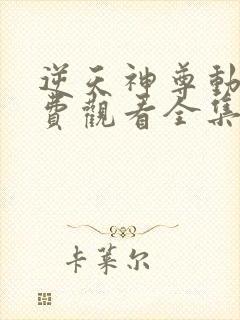 逆天神尊動
費觀看全集
卡萊尔